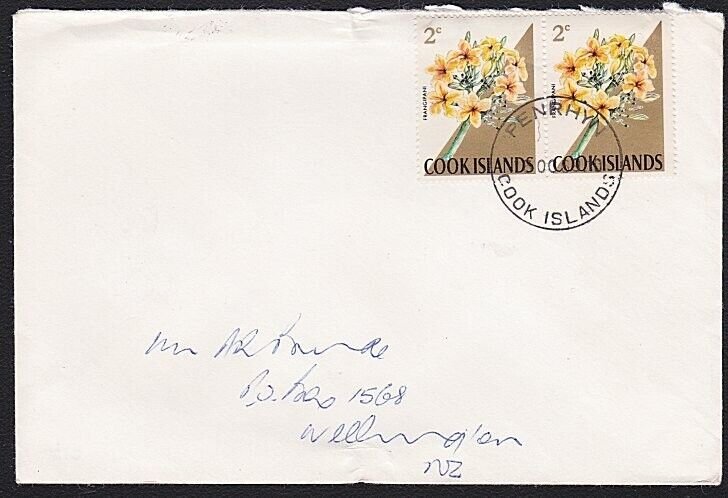 2c 2c
FRANGIPANI FRANGIPANI
COOK ISLANDS COOK ISLANDS
PENRHYN
COOK ISLANDS
P.O. Box 1568
Wellington
NZ